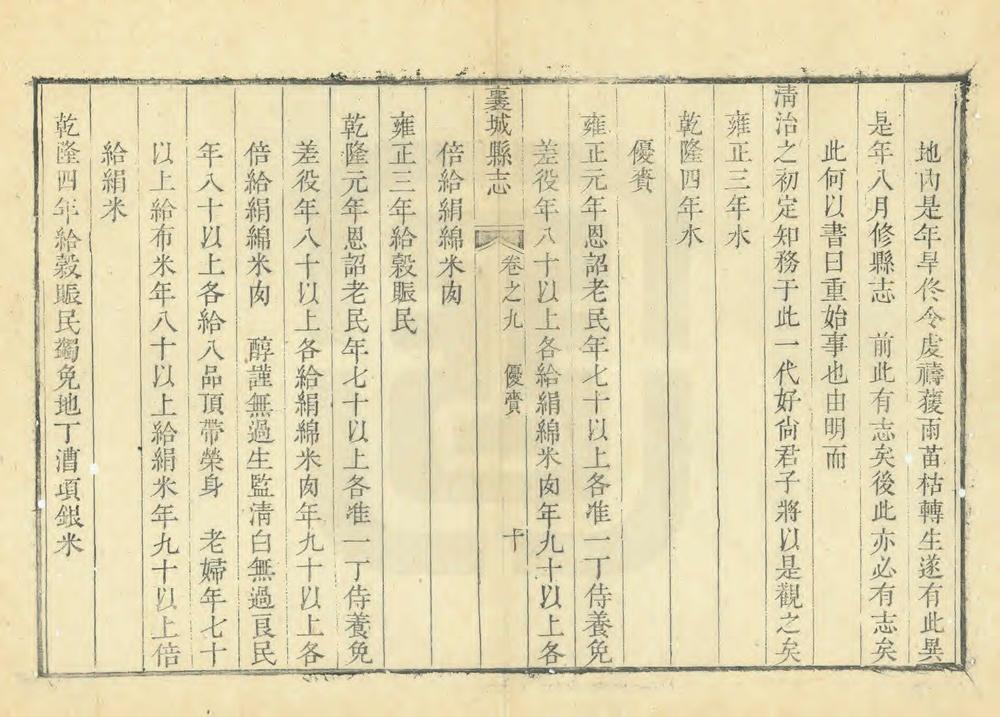 地內是年旱佟令虔禱獲雨苗枯轉生遂有此異
是年八月修縣志　前此有志矣後此亦必有志矣
此何以書曰重始事也由明而
淸治之初定知務于此一代好尙君子將以是觀之矣
雍正三年水
乾隆四年水
優賚
雍正元年恩詔老民年七十以上各准一丁侍養免
差役年八十以上各給絹綿米肉年九十以上各
襄城縣志　卷之九　優賚　十
倍給絹綿米肉
雍正三年給穀賑民
乾隆元年恩詔老民年七十以上各准一丁侍養免
差役年八十以上各給絹綿米肉年九十以上各
倍給絹綿米肉　醇謹無過生監淸白無過良民
年八十以上各給八品頂帶榮身　老婦年七十
以上給布米年八十以上給絹米年九十以上倍
給絹米
乾隆四年給穀賑民蠲免地丁漕項銀米